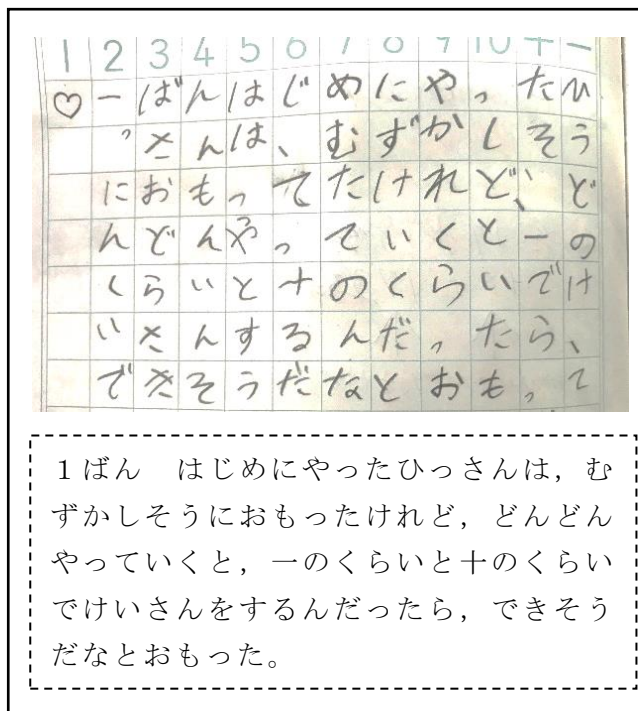 1 2 3 4 5 6 7 8 9 10 十 一
♡一ばんはじめにやったひ
っさんは、むずかしそう
におもってたけれど、ど
んどんやっていくと一の
くらいと十のくらいでけ
いさんするんだったら、
できそうだなとおもって
1ばん　はじめにやったひっさんは，む
ずかしそうにおもったけれど，どんどん
やっていくと，一のくらいと十のくらい
でけいさんをするんだったら，できそう
だなとおもった。